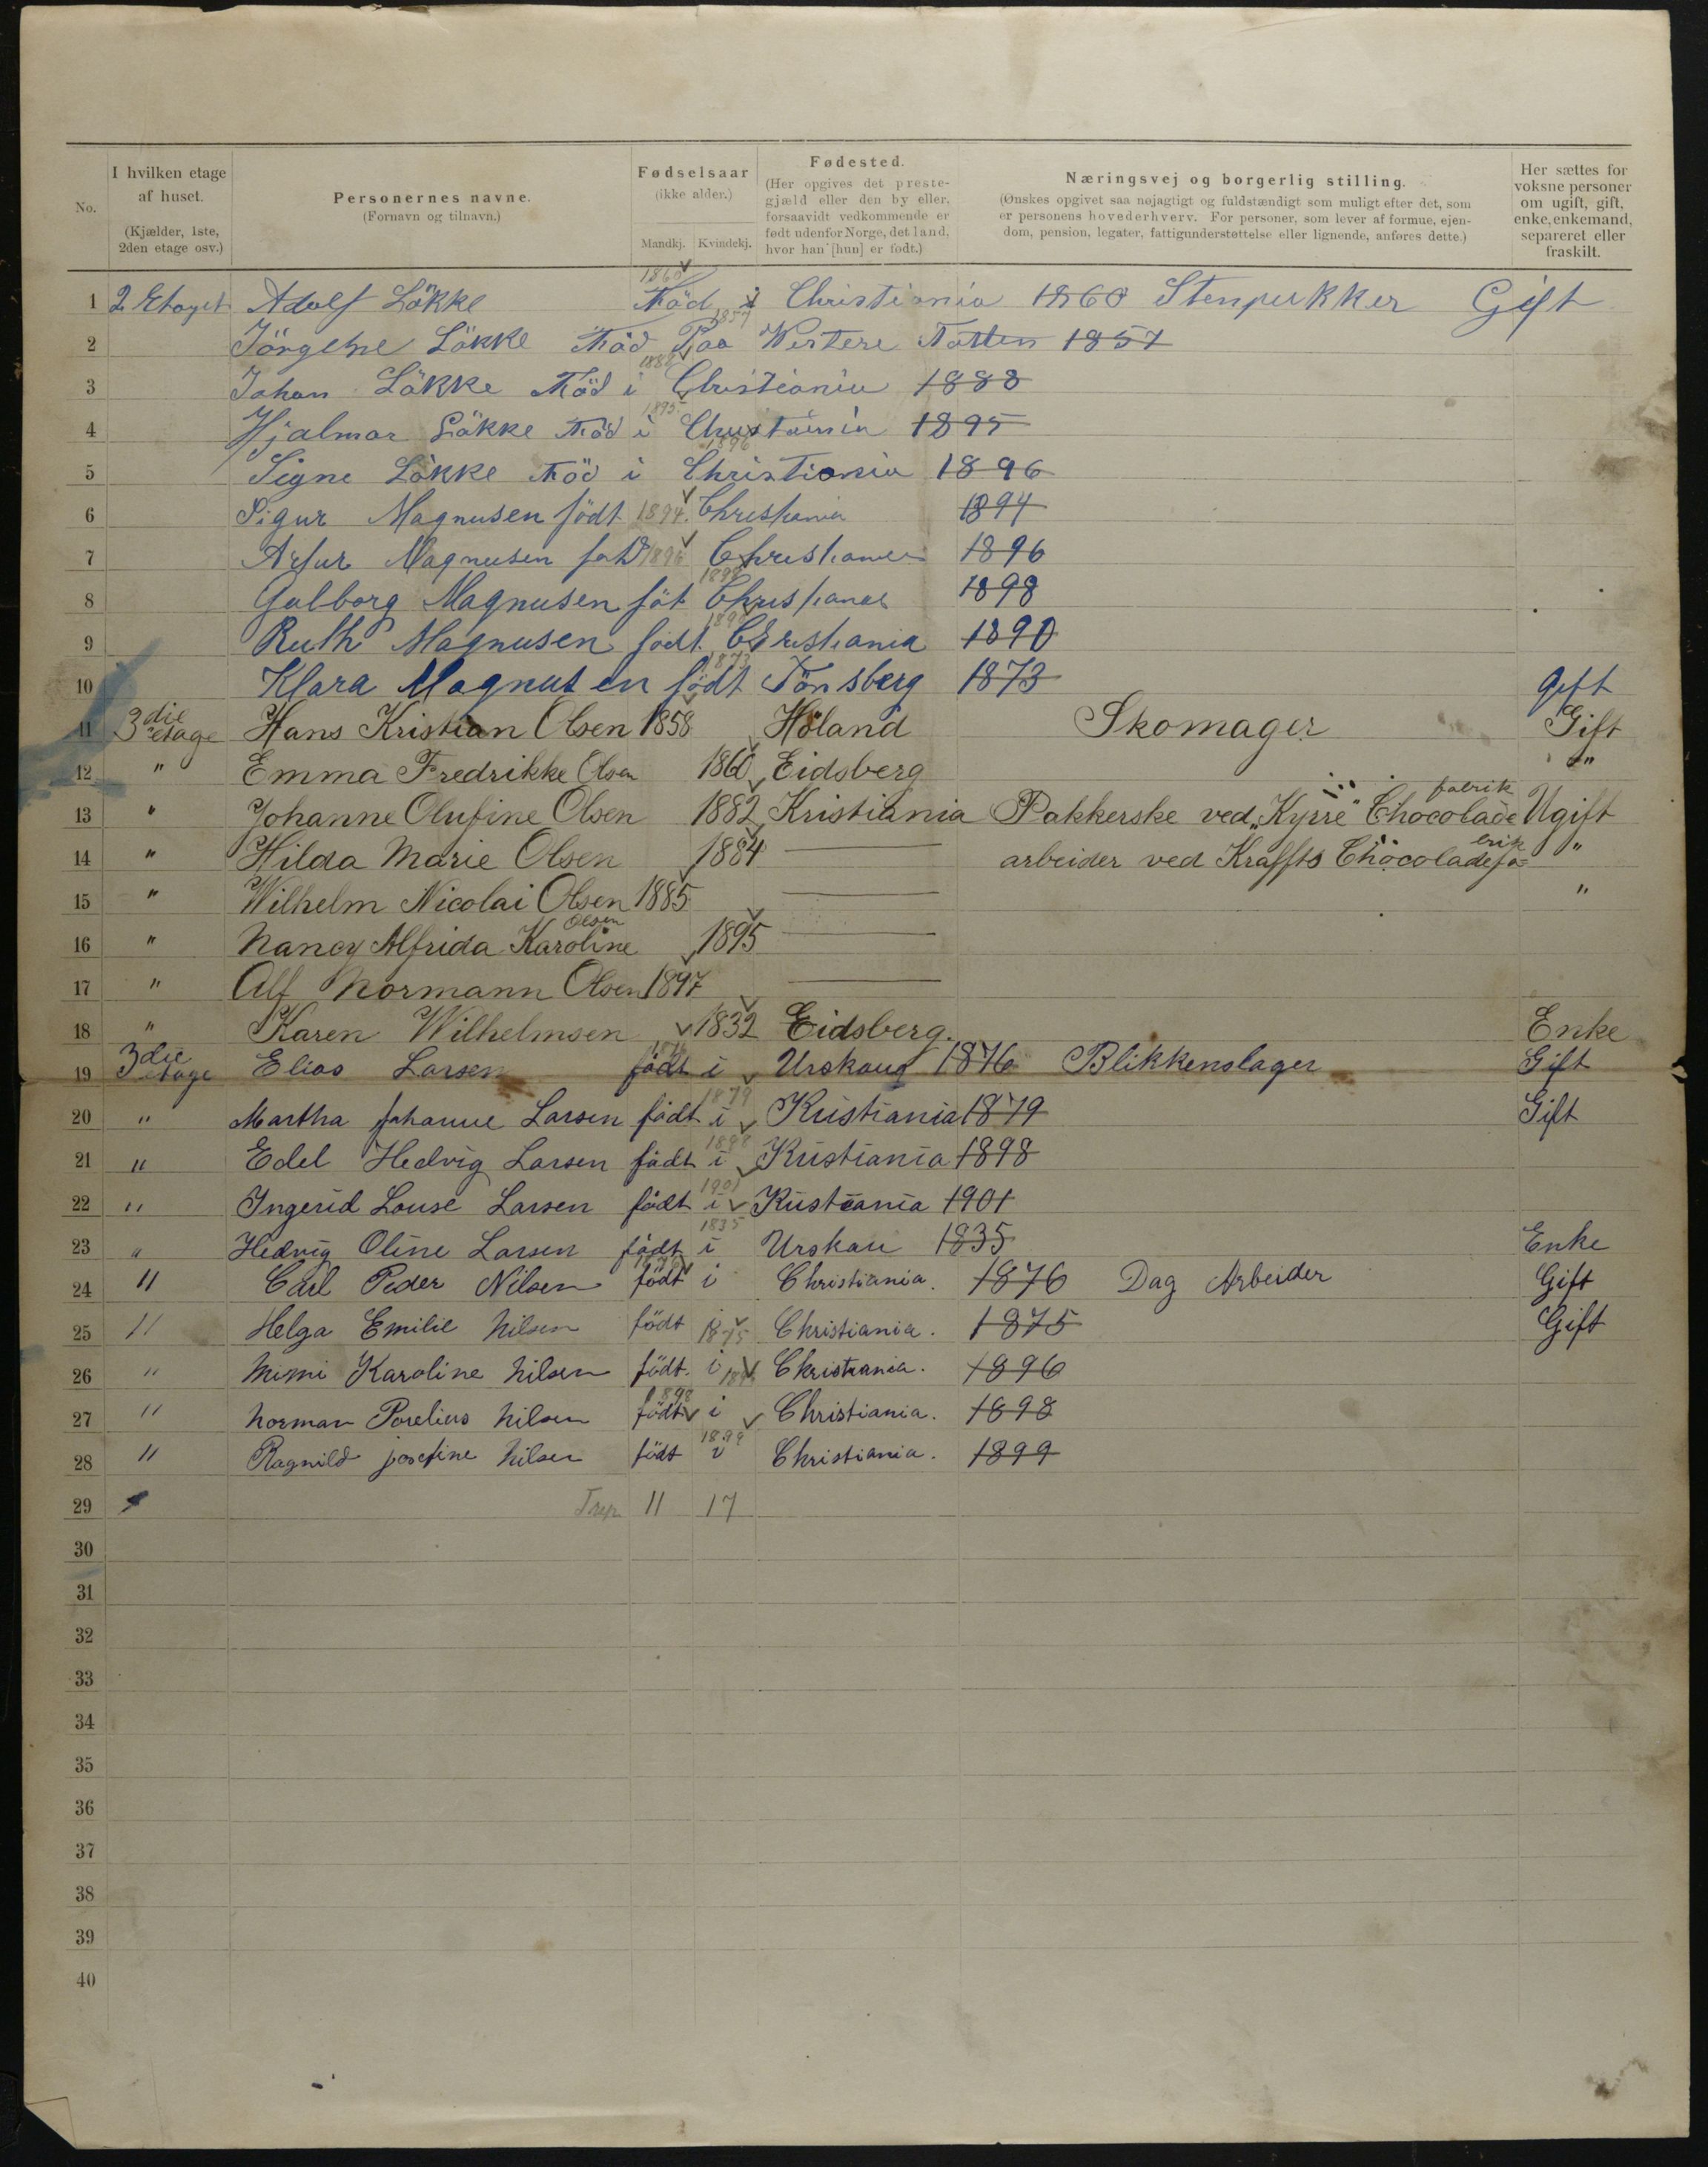 No. | I hvilken etage af huset. (Kjælder, 1ste, 2den etage osv.) | Personernes navne. (Fornavn og tilnavn.) | Fødselsaar (ikke alder.) Mandkj. Kvindekj. | Fødested. (Her opgives det prestegjæld eller den by eller, forsaavidt vedkommende er født udenfor Norge, det land, hvor han [hun] er født.) | Næringsvej og borgerlig stilling. (Ønskes opgivet saa nøjagtigt og fuldstændigt som muligt efter det, som er personens hovederhverv. For personer, som lever af formue, ejendom, pension, legater, fattigunderstøttelse eller lignende, anføres dette.) | Her sættes for voksne personer om ugift, gift, enke, enkemand, separeret eller fraskilt.
1 2 Etaget Adolf Lökke 1860 Föd i Christiania 1860 Stenpukker Gift
2 Jörgine Lökke Föd Paa 1857 Westere Totten 1857
3 Johan Lökke Föd i 1888 Christiania 1888
4 Hjalmar Lökke Föd i 1895 Christiania 1895
5 Signe Lökke Föd i 1896 Christiania 1896
6 Sigur Magnusen födt 1894 Christiania 1894
7 Artur Magnusen 1896 Christiania 1896
8 Galborg Magnusen föt 1898 Christiania 1898
9 Ruth Magnusen födt Christiania 1890
10 Klara Magnusen födt 1873 Tönsberg 1873 gift
11 3die etage Hans Kristian Olsen 1858 Høland Skomager Gift
12 " Emma Fredrikke Olsen 1860 Eidsberg "
13 " Johanne Olufine Olsen 1882 Kristiania Pakkerske ved „Kyrre" Chocolade fabrik Ugift
14 " Hilda Marie Olsen 1884 — arbeider ved Kraffts Chocoladefa=brik "
15 " Wilhelm Nicolai Olsen 1885 — "
16 " Nancy Alfrida Karoline Olsen 1895 —
17 " Alf Normann Olsen 1897 —
18 " Karen Wilhelmsen 1832 Eidsberg. Enke
19 3die etage Elias Larsen 1876 födt i Urskoug 1876 Blikkenslager Gift
20 " Martha Johanne Larsen födt i 1879 Kristiania 1879 Gift
21 " Edel Hedvig Larsen födt i 1898 Kristiania 1898
22 " Ingerid Louse Larsen födt i 1901 Kristiania 1901
23 " Hedvig Oline Larsen födt i 1835 Urskau 1835 Enke
24 " Carl Peder Nilsen 1876 födt i Christiania. 1876 Dag Arbeider Gift
25 " Helga Emilie Nilsen födt 1875 Christiania. 1875 Gift
26 " Mimi Karoline Nilsen födt. i Christiania. 1896
27 " Norman Porelius Nilsen 1898 födt i Christiania. 1898
28 " Ragnild josefine Nilsen födt i 1899 Christiania. 1899
29 11 17
30
31
32
33
34
35
36
37
38
39
40